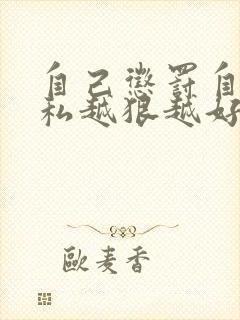 自己惩罚自
私越狠越好
歐麦香